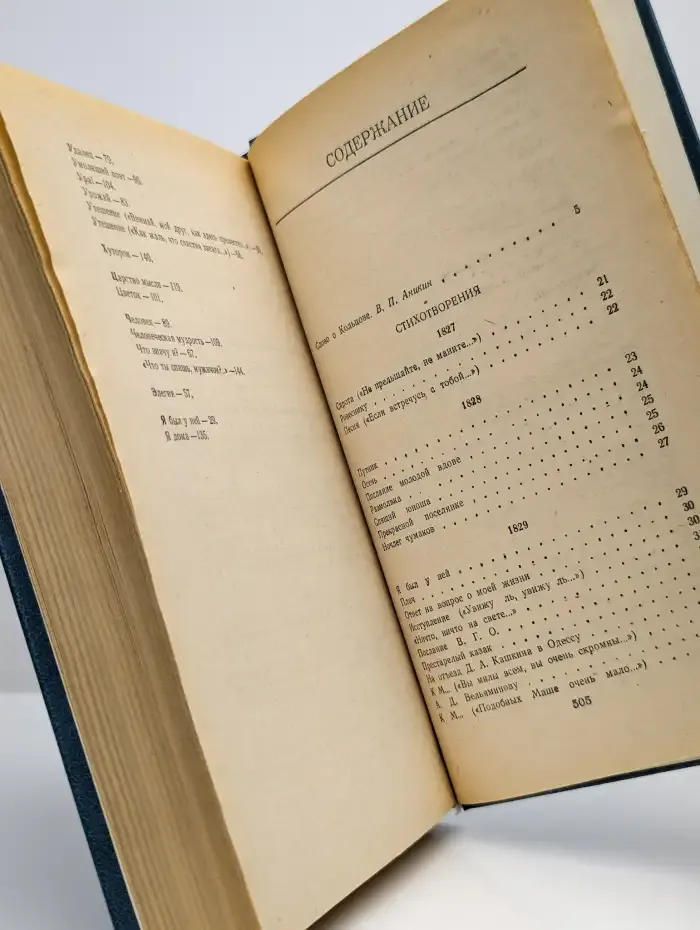 Удалец — 79.
Умолкший поэт — 90.
Ура! — 104.
Урожай — 83.
Утешение («Внимай, мой друг, как здесь прелестно...»)
Утешение («Как жаль, что счастия звезда...») —
Хуторок — 140.
Царство мысли — 119.
Цветок — 101.
Человек — 89.
Человеческая мудрость — 109.
Что значу я? — 67.
«Что ты спишь, мужичок?..» — 144.
Элегия — 57.
Я был у ней — 29.
Я дома — 135.
СОДЕРЖАНИЕ
Слово о Кольцове. В. П. Аникин 5
СТИХОТВОРЕНИЯ
1827
Сирота («Не прельщайте, не маните...») 21
Ровеснику 22
Песня («Если встречусь с тобой...») 22
1828
Путник 23
Осень 24
Послание молодой вдове 24
Размолвка 25
Спящий юноша 25
Прекрасной поселянке 26
Ночлег чумаков 27
1829
Я был у ней 29
Плач 30
Ответ на вопрос о моей жизни 30
Исступление («Увижу ль, увижу ль...») 3
«Ничто, ничто на свете...»
Послание В. Г. О.
Престарелый казак
На отъезд Д. А. Кашкина в Одессу
К М... («Вы милы всем, вы очень скромны...»)
А. Д. Вельяминову
К М... («Подобных Маше очень мало...»)
505